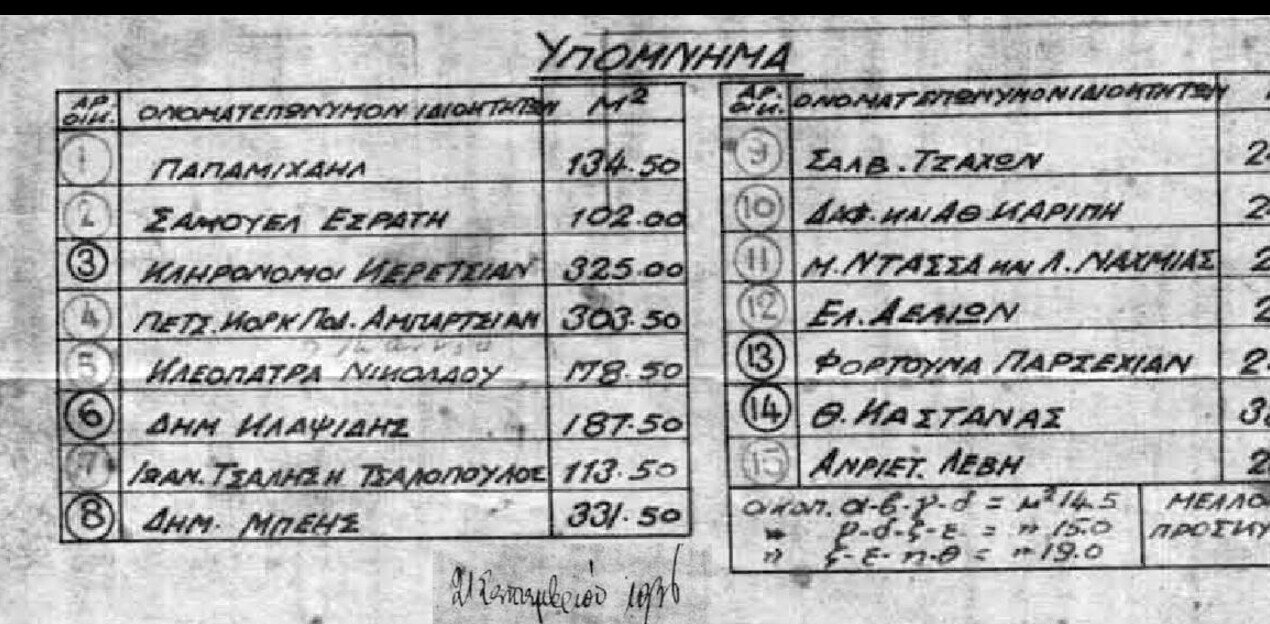 ΥΠΟΜΝΗΜΑ
ΑΡ. ΟΙΚ. ΟΝΟΜΑΤΕΠΩΝΥΜΟΝ ΙΔΙΟΚΤΗΤΩΝ Μ²
1 ΠΑΠΑΜΙΧΑΗΛ 134.50
2 ΣΑΜΟΥΕΛ ΕΣΡΑΤΗ 102.00
3 ΚΛΗΡΟΝΟΜΟΙ ΚΕΡΕΤΣΙΑΝ 325.00
4 ΠΕΤΣ. ΚΟΡΚ ΠΟΛ. ΑΜΠΑΡΤΣΙΑΝ 303.50
5 ΚΛΕΟΠΑΤΡΑ ΝΙΚΟΛΑΟΥ 178.50
6 ΔΗΜ ΚΛΑΨΙΔΗΣ 187.50
7 ΙΩΑΝ. ΤΣΑΛΗΣ Η ΤΣΑΛΟΠΟΥΛΟΣ 113.50
8 ΔΗΜ. ΜΠΕΗΣ 331.50
21 Σεπτεμβρίου 1936
ΑΡ. ΟΙΚ. ΟΝΟΜΑΤΕΠΩΝΥΜΟΝ ΙΔΙΟΚΤΗΤΩΝ
9 ΣΑΛΒ. ΤΖΑΧΩΝ
10 ΔΑΦ. ΚΑΙ ΑΘ. ΚΑΡΙΠΗ
11 Μ. ΝΤΑΣΣΑ ΚΑΙ Λ. ΝΑΧΜΙΑΣ
12 ΕΛ. ΔΕΛΙΩΝ
13 ΦΟΡΤΟΥΝΑ ΠΑΡΣΕΧΙΑΝ
14 Θ. ΚΑΣΤΑΝΑΣ
15 ΑΝΡΙΕΤ. ΛΕΒΗ
ΟΙΚΟΠ. α-β-γ-δ = Μ² 14.5
" γ-δ-ζ-ε = " 15.0
" ζ-ε-η-θ = " 19.0